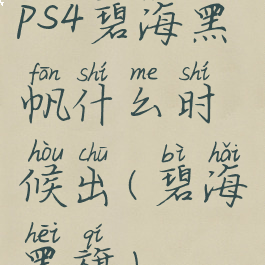 PS4碧海黑
fān shí me shí
帆什么时
hòu chū bì hǎi
候出(碧海
hēi qí
黑旗)